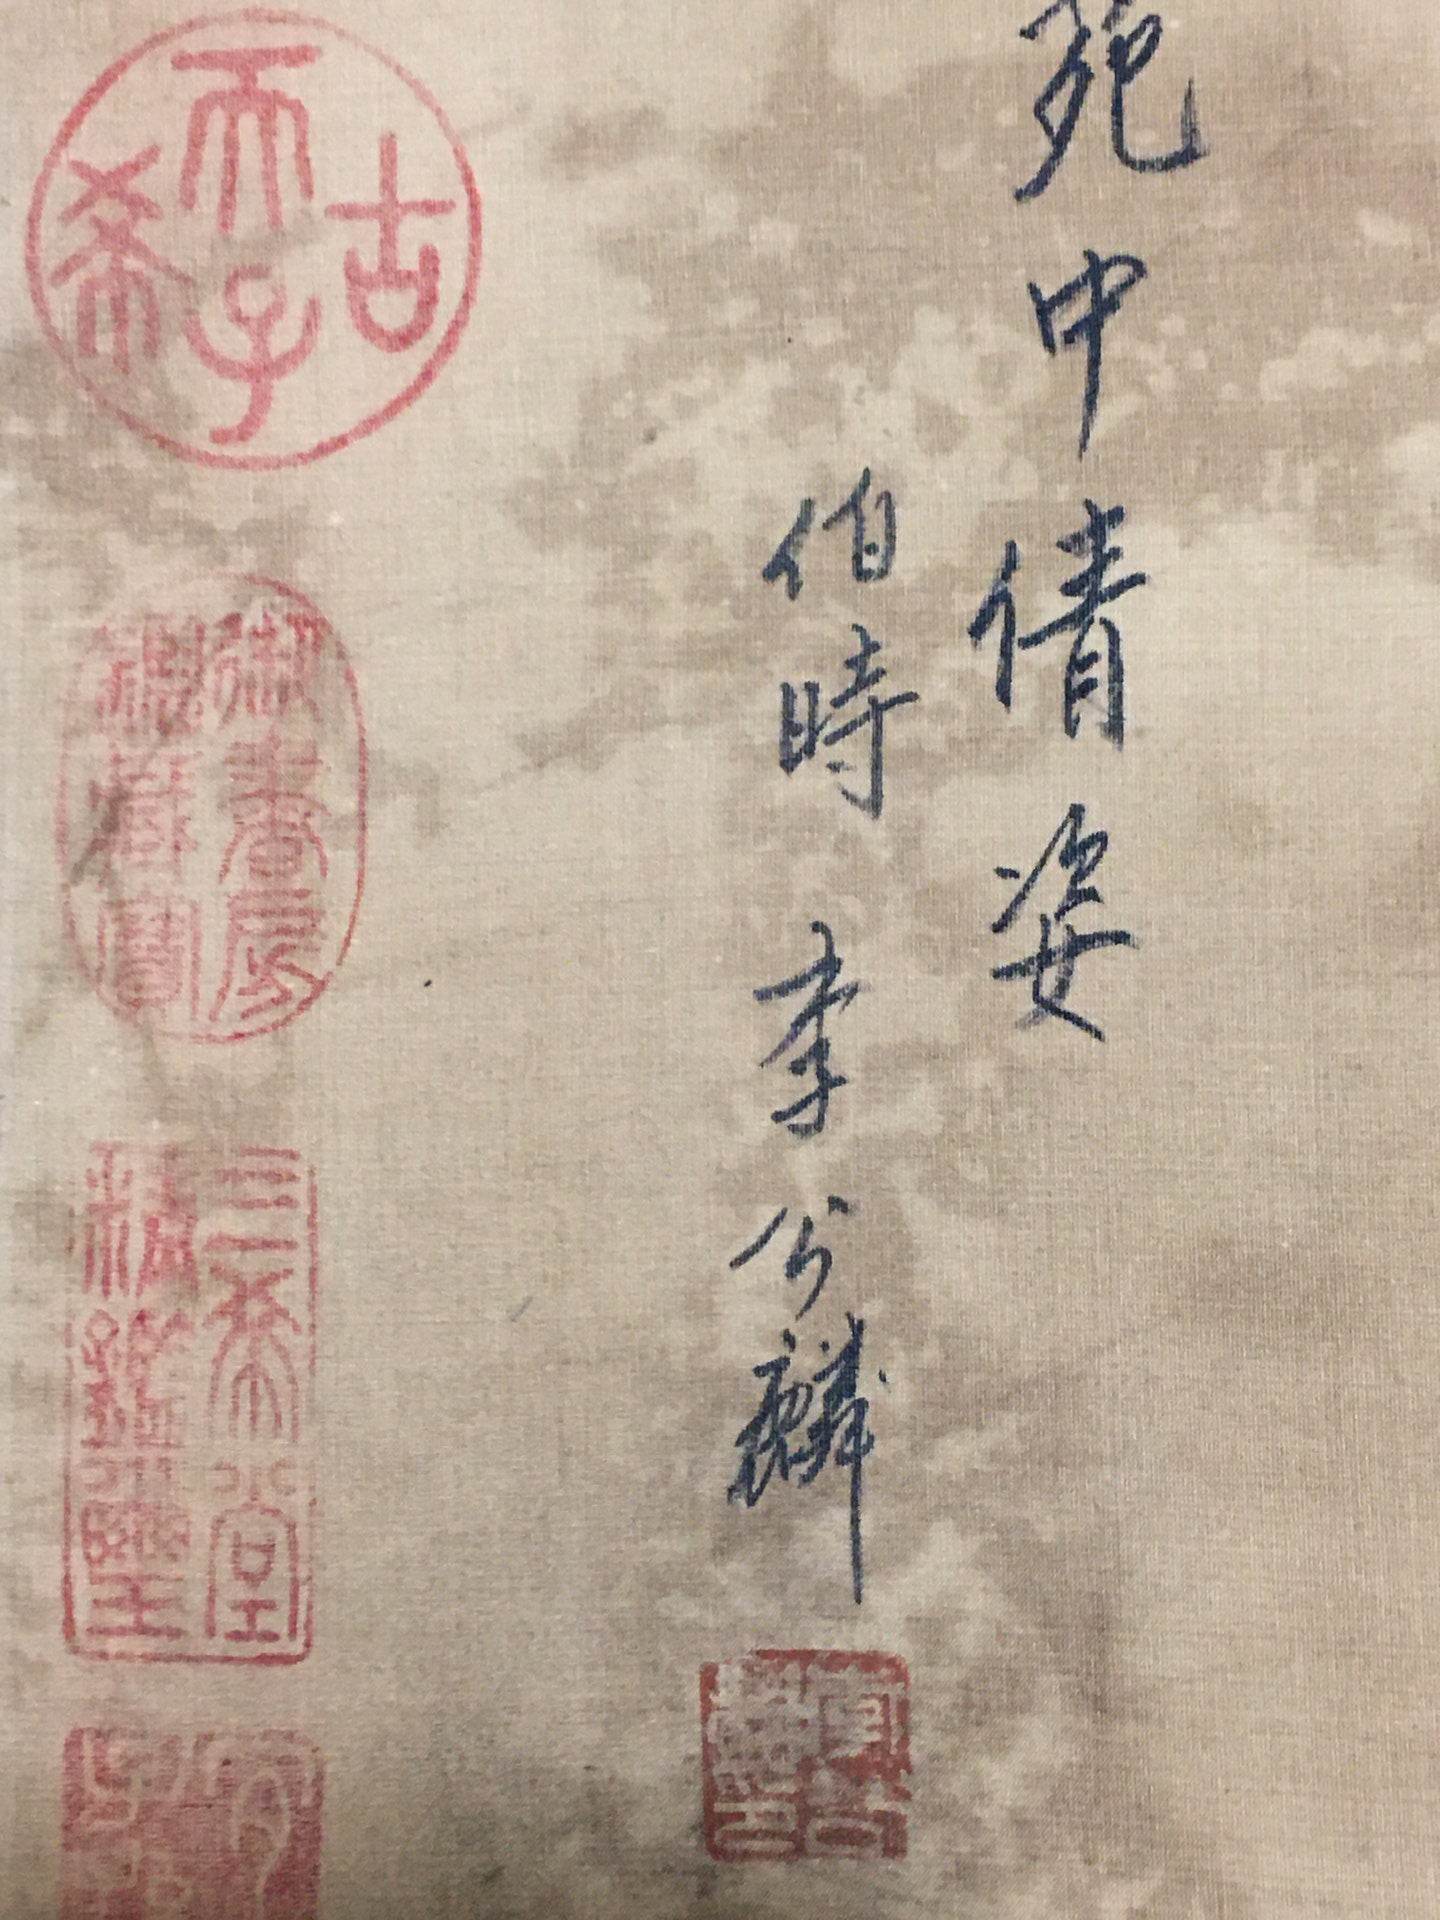 苑中倩姿
伯時李公麟
古希天子
御書房
鑑藏寶
三希堂
精鑑璽